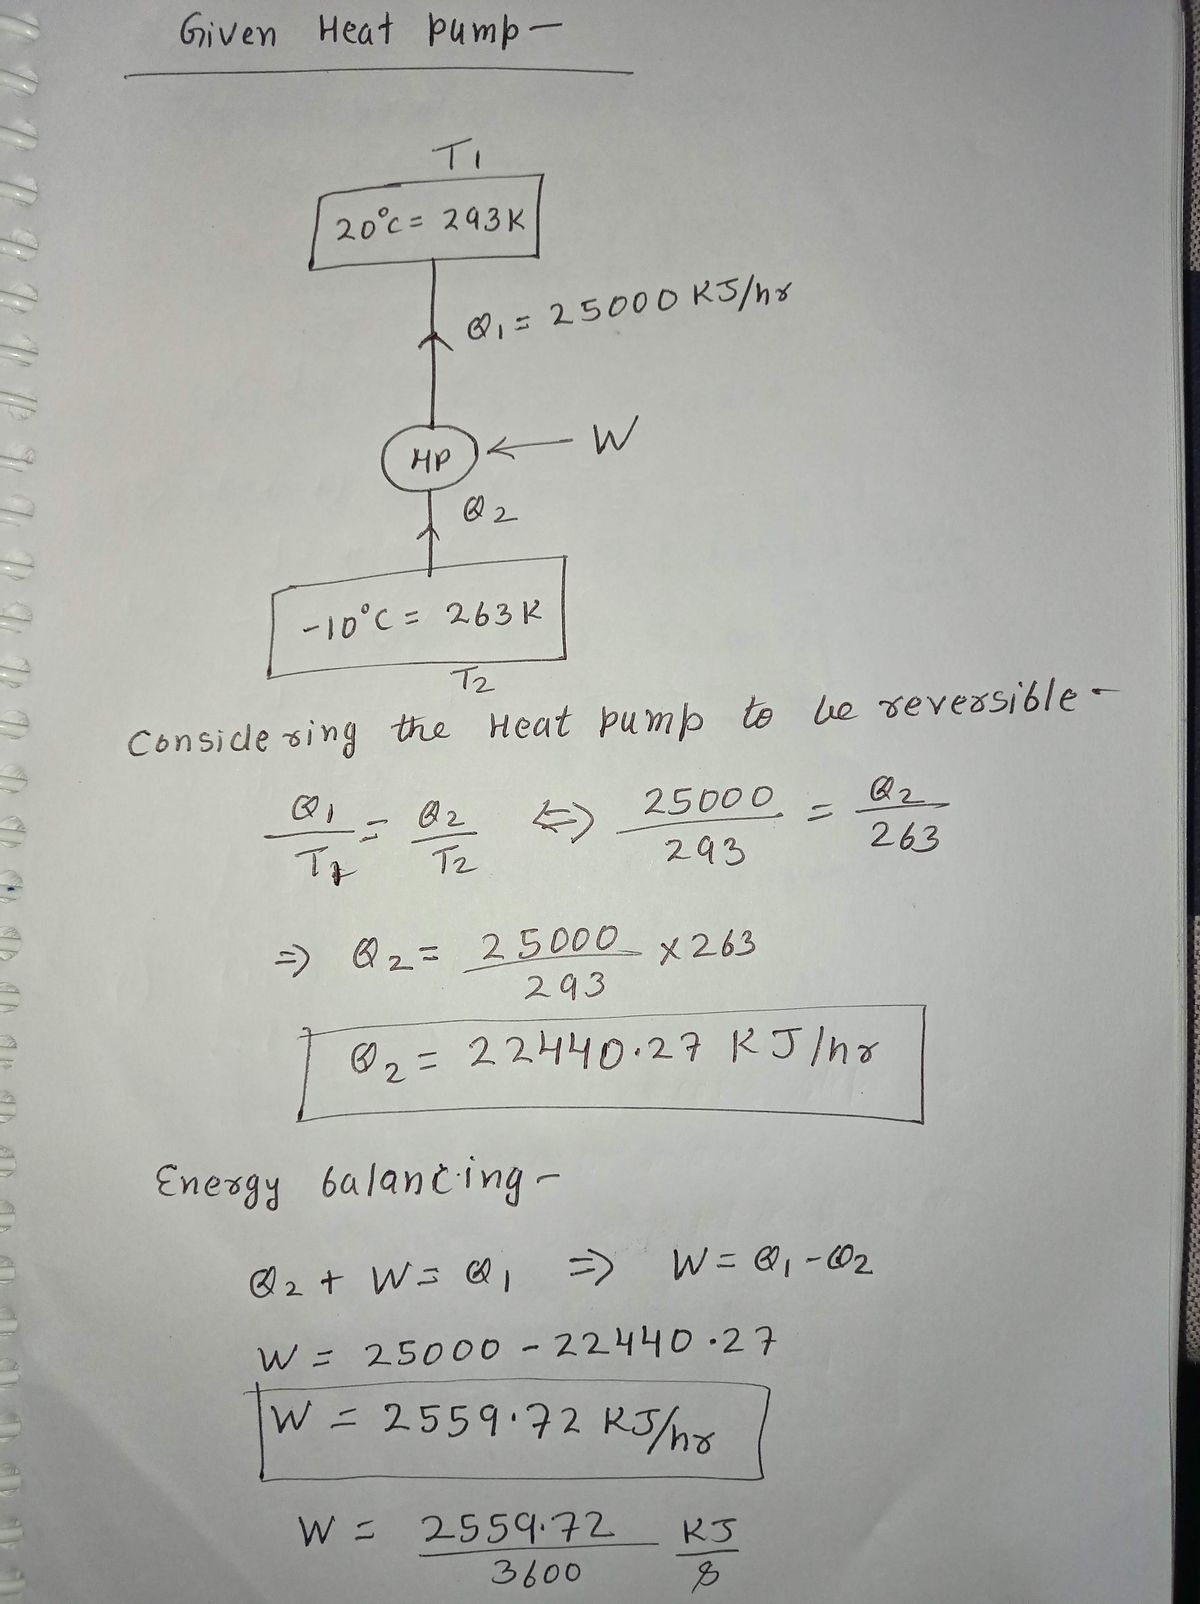 Given Heat pump -
T1
20°C = 293K
Q1 = 25000 KJ/hr
HP
W
Q2
-10°C = 263K
T2
Considering the Heat pump to be reversible -
Q1/T1 = Q2/T2 <=> 25000/293 = Q2/263
=> Q2 = 25000/293 x 263
Q2 = 22440.27 KJ/hr
Energy balancing -
Q2 + W = Q1 => W = Q1 - Q2
W = 25000 - 22440.27
W = 2559.72 KJ/hr
W = 2559.72/3600 KJ/s